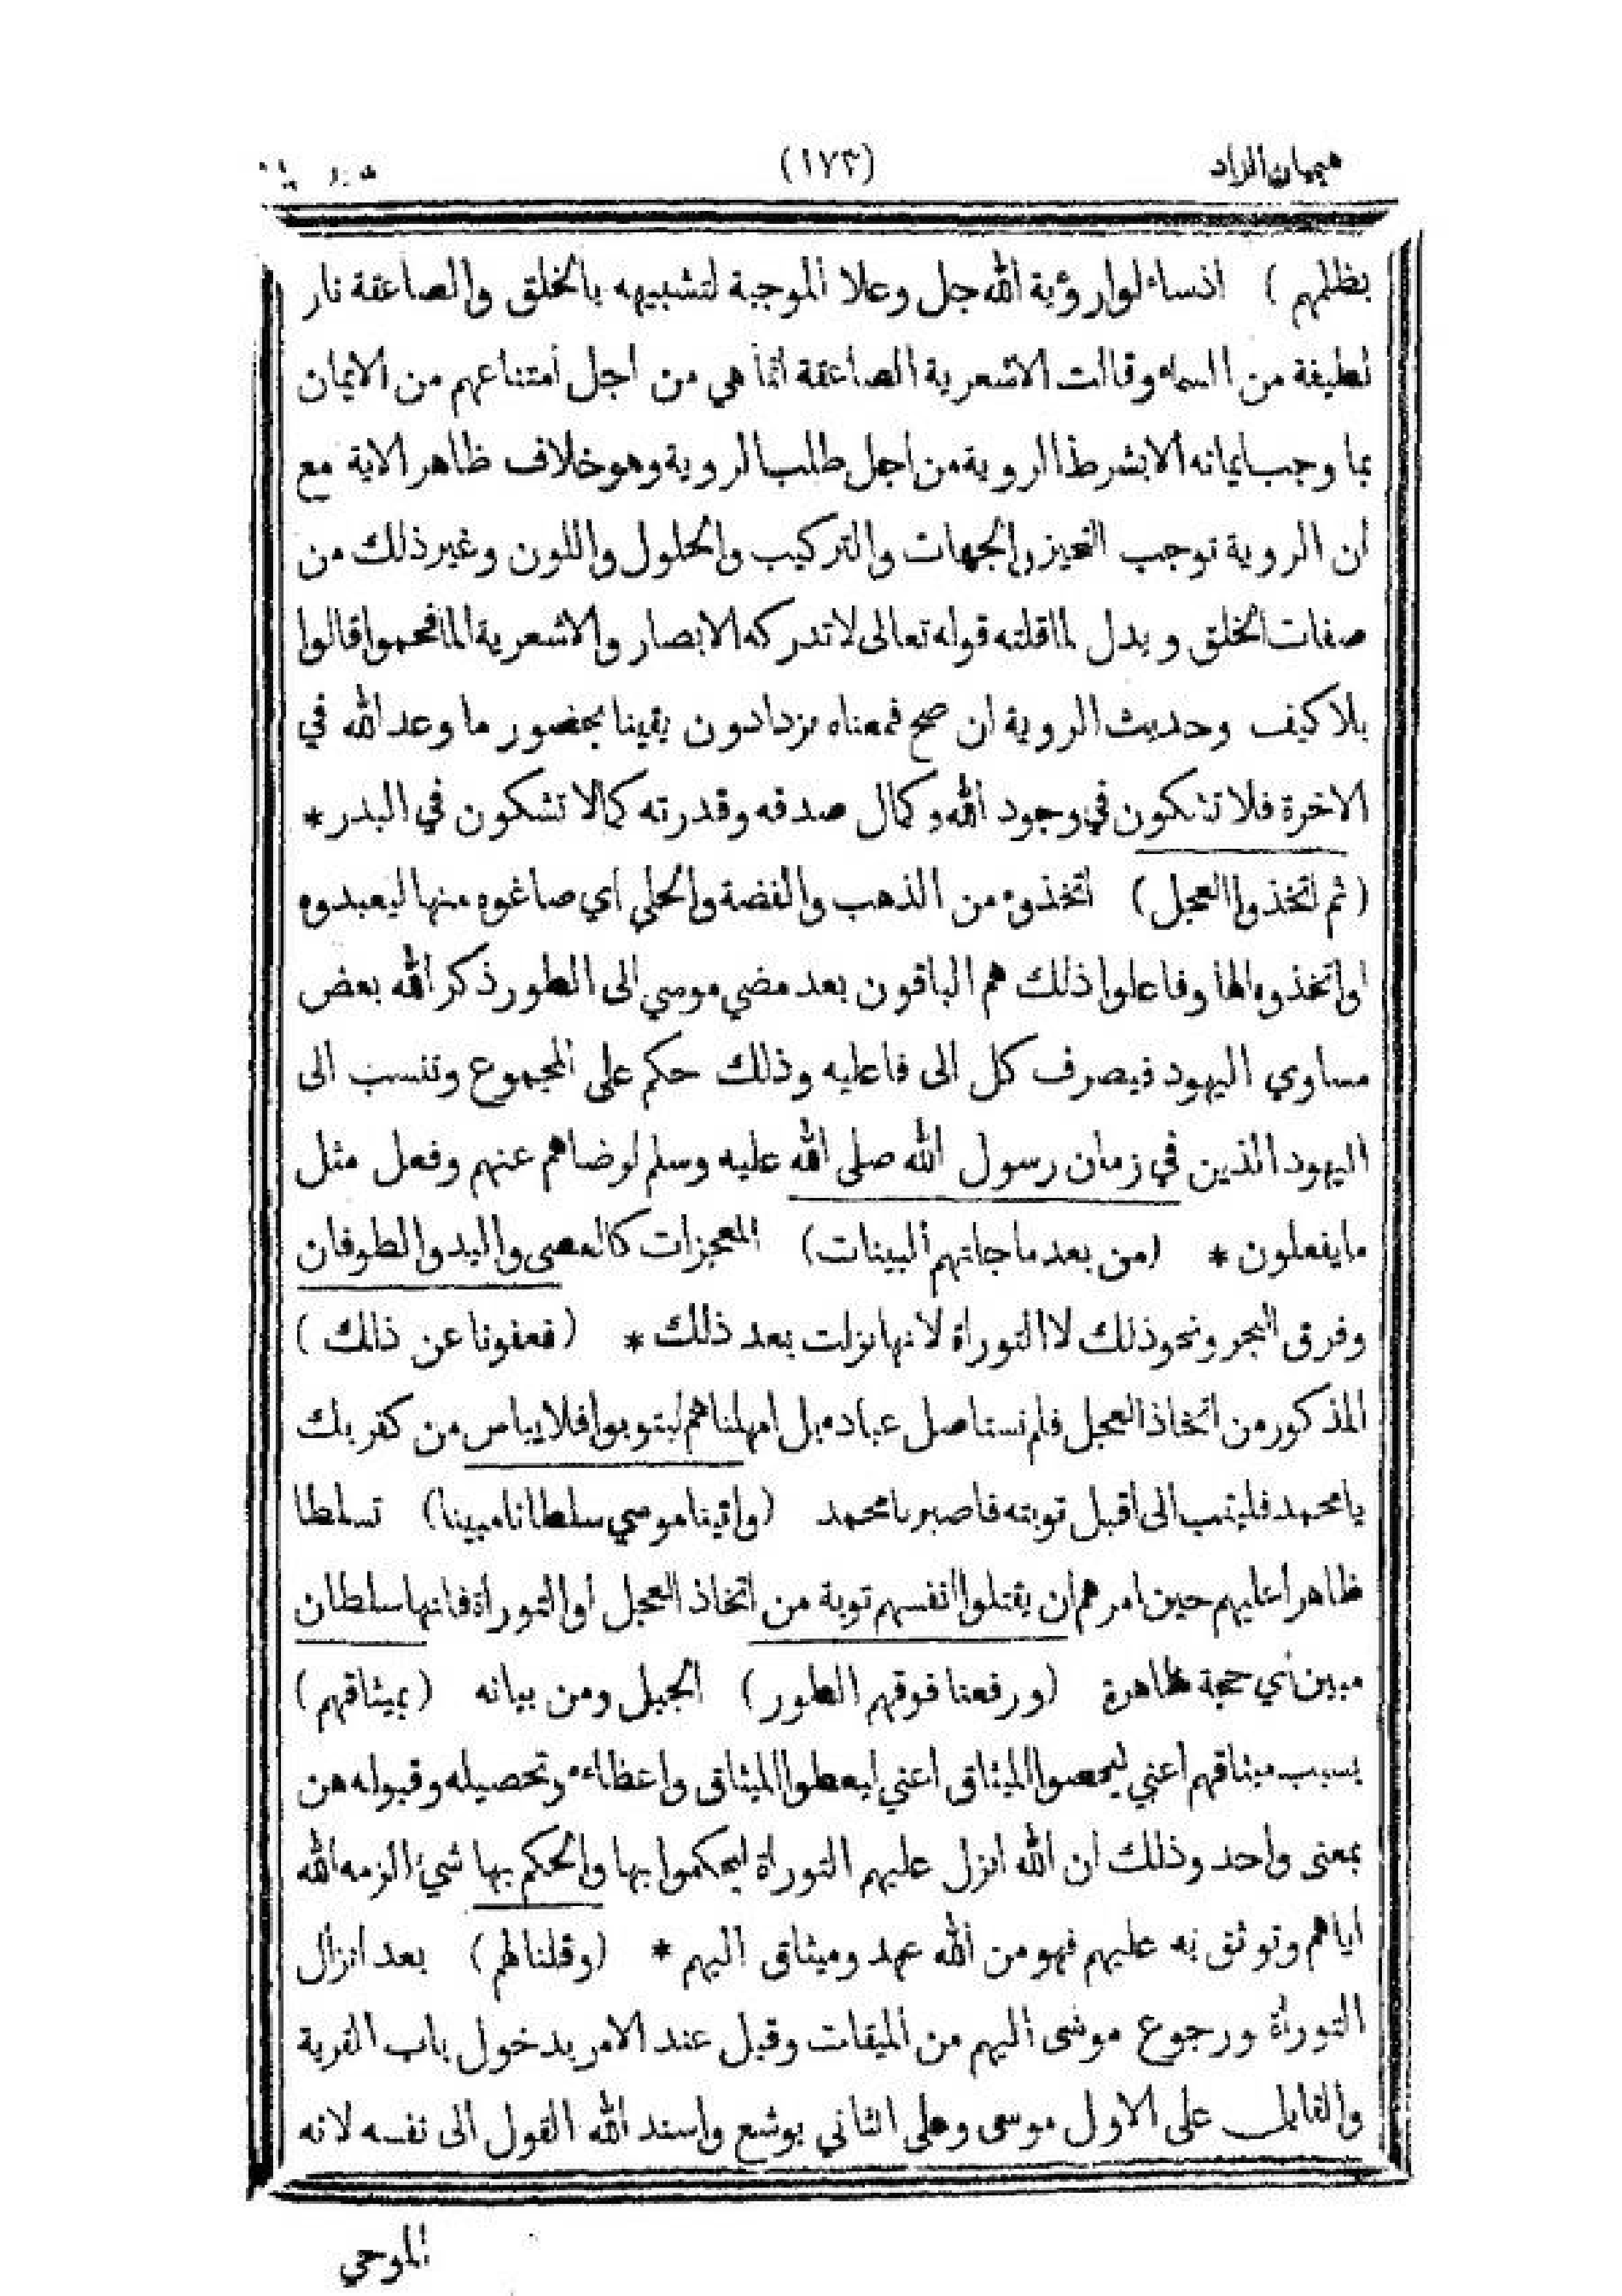 هيمان الزاد (١٧٣)
بظلمهم ) اذ نساءلوا رؤية الله جل وعلا الموجبة لتشبيهه بالخلق والصاعقة نار
لطيفة من السماء وقالت الاشعرية الصاعقة انما هي من اجل امتناعهم من الايمان
بما وجب ايمانه الا بشرط الروية من اجل طلب الروية وهو خلاف ظاهر الاية مع
ان الروية توجب التحيز والجهات والتركيب والحلول واللون وغير ذلك من
صفات الخلق ويدل لما قلته قوله تعالى لا تدركه الابصار والاشعرية لما افحموا قالوا
بلا كيف وحديث الروية ان صح فمعناه تزدادون يقينا بحضور ما وعد الله في
الاخرة فلا تشكون في وجود الله وكمال صدقه وقدرته كما لا تشكون في البدر *
(ثم اتخذوا العجل) اتخذوه من الذهب والفضة والحلي اي صاغوه منها ليعبدوه
او اتخذوه الها وفاعلوا ذلك هم الباقون بعد مضي موسي الى الطور ذكر الله بعض
مساوي اليهود فيصرف كل الى فاعليه وذلك حكم على المجموع وتنسب الى
اليهود الذين في زمان رسول الله صلى الله عليه وسلم لرضاهم عنهم وفعل مثل
ما يفعلون * (من بعد ما جاتهم البينات) المعجزات كالعصى واليد والطوفان
وفرق البحر ونحو ذلك لا التوراة لانها نزلت بعد ذلك * (فعفونا عن ذلك )
المذكور من اتخاذ العجل فلم نستاصل عباده بل امهلناهم ليتوبوا فلا يياس من كفر بك
يا محمد فليتب الى اقبل توبته فاصبر يا محمد (واتينا موسي سلطانا مبينا) تسلطا
ظاهرا عليهم حين امرهم ان يقتلوا انفسهم توبة من اتخاذ العجل او التوراة فانها سلطان
مبين اي حجة ظاهرة (ورفعنا فوقهم الطور) الجبل ومن بيانه (بميثاقهم)
بسبب ميثاقهم اعني ليعطوا الميثاق واعطاءه وتحصيله وقبوله هن
بمعنى واحد وذلك ان الله انزل عليهم التوراة ليحكموا بها والحكم بها شيء الزمه الله
اياهم وتوثق به عليهم فهو من الله عهد وميثاق اليهم * (وقلنا لهم) بعد انزال
التوراة ورجوع موسى اليهم من الميقات وقيل عند الامر بدخول باب القرية
والقايل على الاول موسى وعلى الثاني يوشع واسند الله القول الى نفسه لانه
الموحي